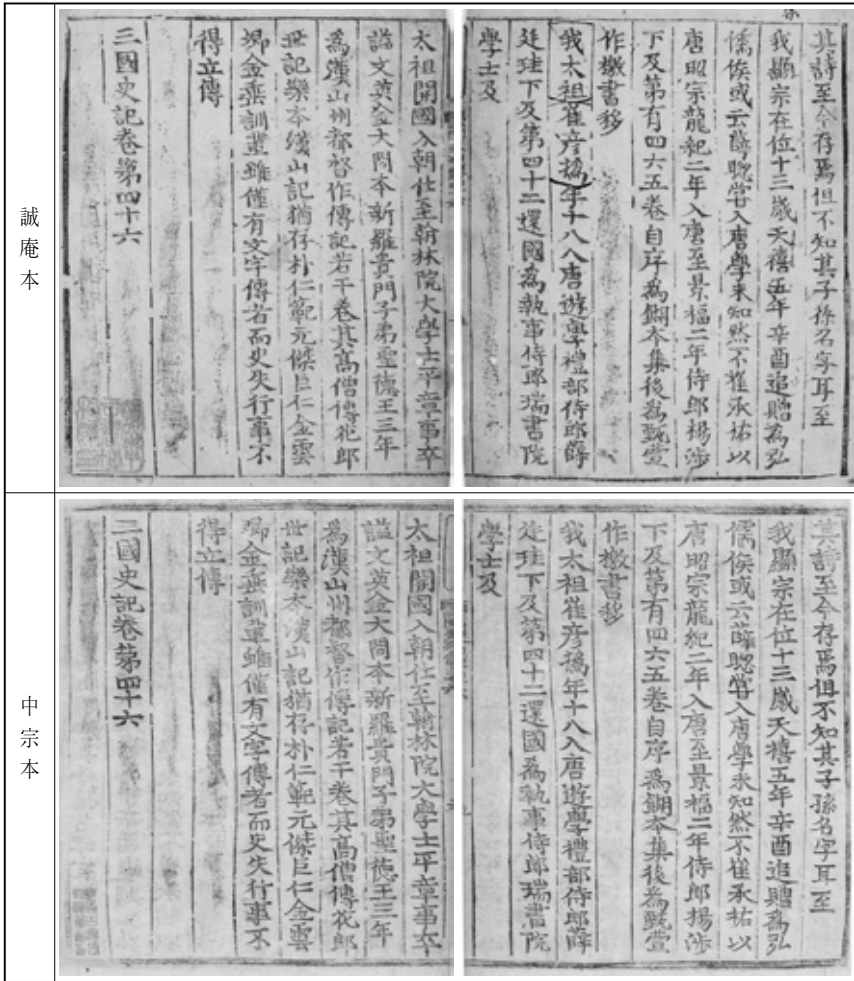 誠庵本
其詩至今存焉但不知其子孫名字耳至
我顯宗在位十三歲天禧五年辛酉追贈為弘
儒侯或云薛聰甞入唐學未知然不崔承祐以
唐昭宗龍紀二年入唐至景福二年侍郎楊涉
下及第有四六五卷自序為餬本集後為甄萱
作檄書移
我太祖崔彦撝年十八八唐遊學禮部侍郎薛
廷珪下及第四十二還國為執事侍郎瑞書院
學士及
太祖開國入朝仕至翰林院大學士平章事卒
謚文英金大問本新羅貴門子弟聖德王三年
為漢山州都督作傳記若干卷其高僧傳花郎
世記樂本漢山記猶存朴仁範元傑巨仁金雲
卿金垂訓輩雖僅有文字傳者而史失行事不
得立傳
三國史記卷第四十六
中宗本
其詩至今存焉但不知其子孫名字耳至
我顯宗在位十三歲天禧五年辛酉追贈為弘
儒侯或云薛聰甞入唐學未知然不崔承祐以
唐昭宗龍紀二年入唐至景福二年侍郎楊涉
下及第有四六五卷自序為餬本集後為甄萱
作檄書移
我太祖崔彦撝年十八入唐遊學禮部侍郎薛
廷珪下及第四十二還國為執事侍郎瑞書院
學士及
太祖開國入朝仕至翰林院大學士平章事卒
謚文英金大問本新羅貴門子弟聖德王三年
為漢山州都督作傳記若干卷其高僧傳花郎
世記樂本漢山記猶存朴仁範元傑巨仁金雲
卿金垂訓輩雖僅有文字傳者而史失行事不
得立傳
二國史記卷第四十六